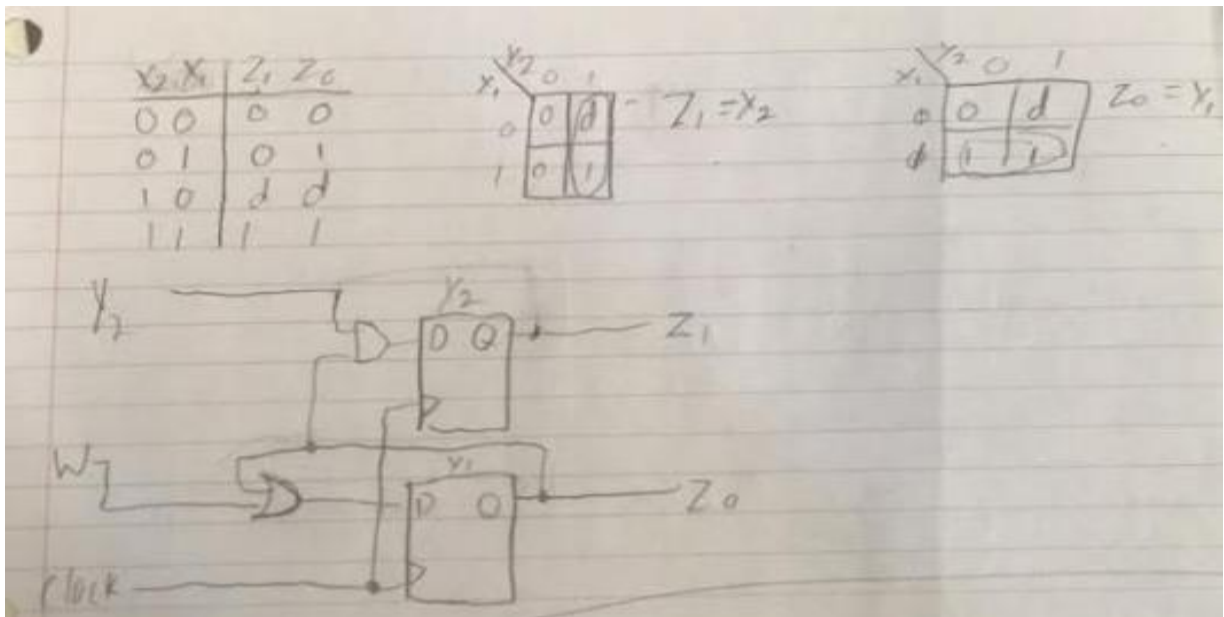 Y2 Y1 | Z1 Z0
0 0 | 0 0
0 1 | 0 1
1 0 | d d
1 1 | 1 1
Y2 0 1
Y1
0 0 d
1 0 1
Z1 = Y2
Y2 0 1
Y1
0 0 d
1 1
Z0 = Y1
Y2
Y2
D Q
Z1
W
Y1
D Q
Z0
Clock